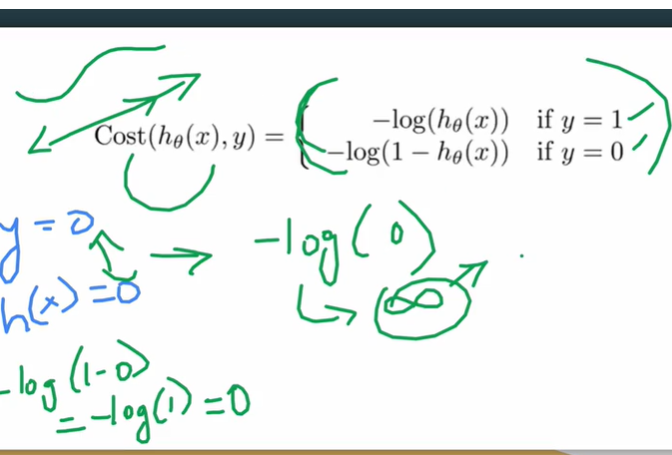 Cost(hθ(x), y) = { −log(hθ(x)) if y = 1
−log(1 − hθ(x)) if y = 0
y = 0 → -log(0)
h(x) = 0 ↳ ∞
-log(1-0)
= -log(1) = 0